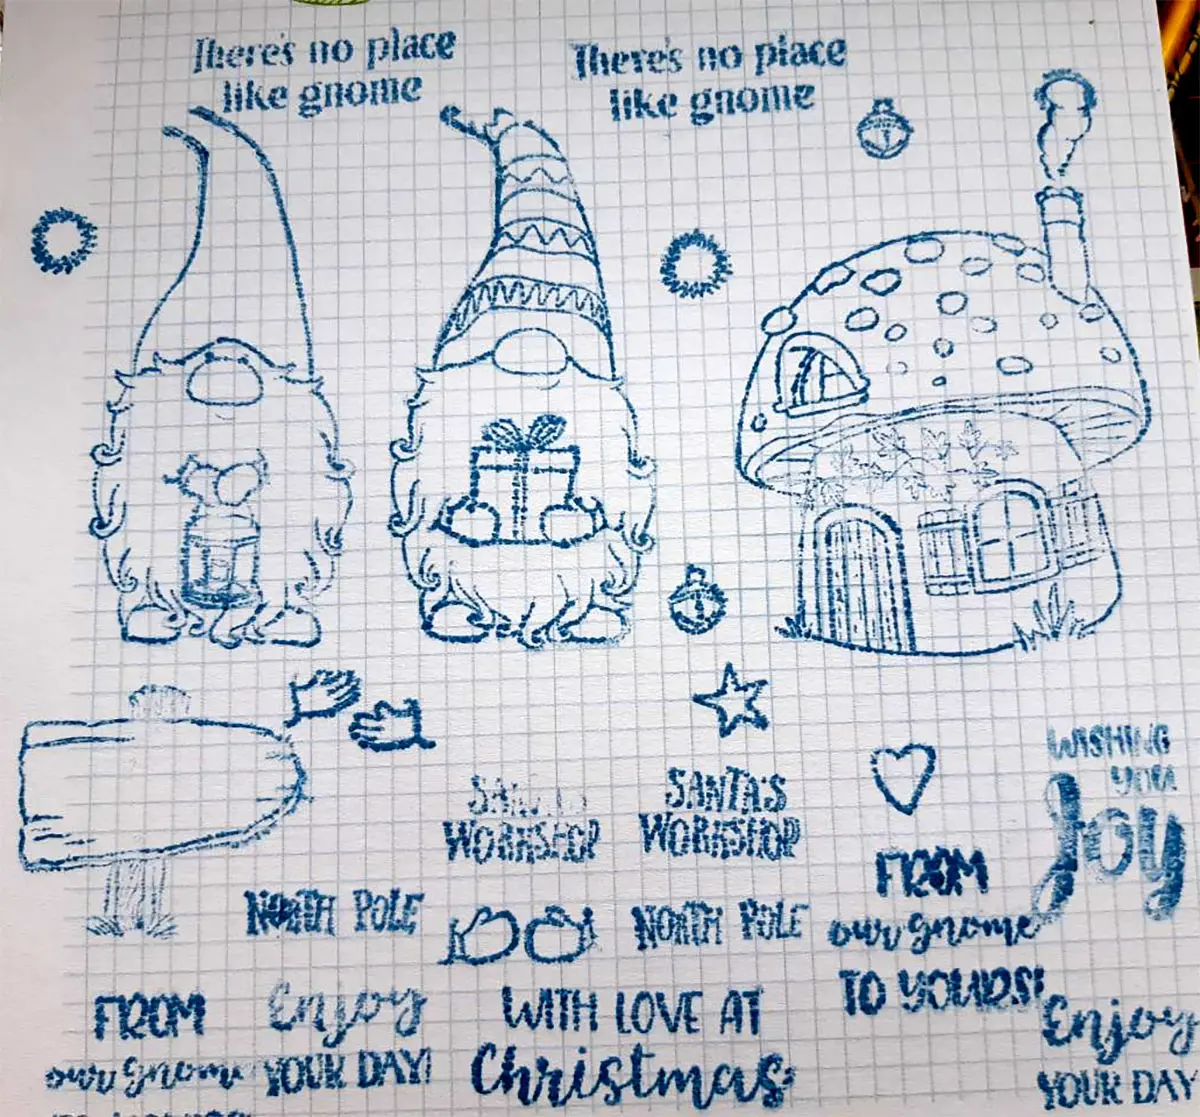 There's no place
like gnome
There's no place
like gnome
SANTA'S
WORKSHOP
SANTA'S
WORKSHOP
WISHING
YOU
Joy
NORTH POLE
NORTH POLE
FROM
our gnome
TO YOURS!
FROM
our gnome
Enjoy
YOUR DAY!
WITH LOVE AT
Christmas
Enjoy
YOUR DAY